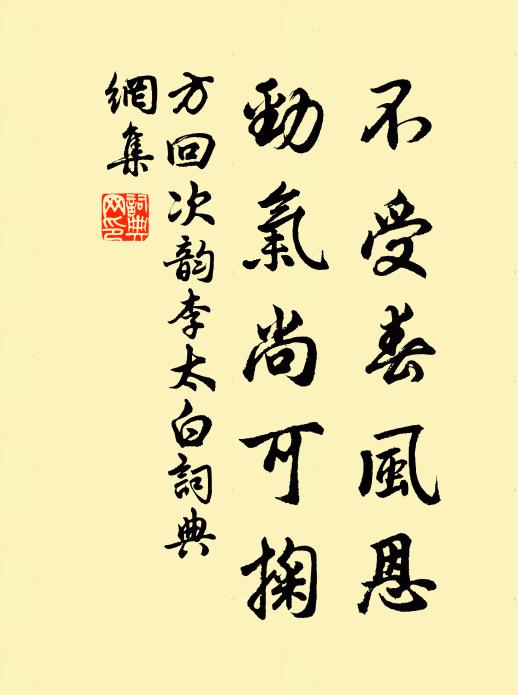 不受春風恩
勁氣尚可掬
方回次韵李太白詞典
網集
詞典
网印